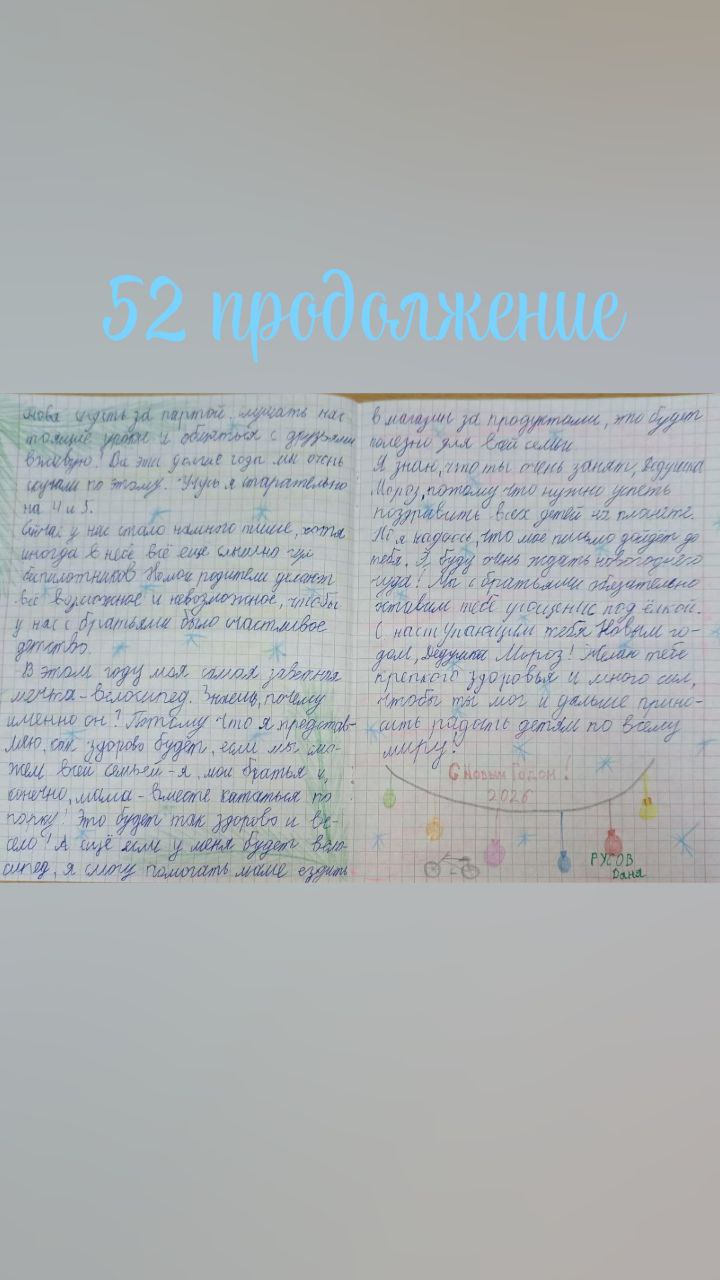 52 продолжение
снова сидеть за партой, слушать нас-
тоящие уроки и общаться с друзьями
вживую! За эти долгие годы мы очень
скучали по этому. Учусь я старательно
на 4 и 5.
Сейчас у нас стало намного тише, хотя
иногда в небе всё ещё слышно гул
беспилотников. Но мои родители делают
всё возможное и невозможное, чтобы
у нас с братьями было счастливое
детство.
В этом году моя самая заветная
мечта - велосипед. Знаешь, почему
именно он? Потому что я представ-
ляю, как здорово будет, если мы смо-
жем всей семьёй - я, мои братья и,
конечно, мама - вместе кататься по
парку! Это будет так здорово и ве-
село! А ещё если у меня будет вело-
сипед, я смогу помогать маме ездить
в магазин за продуктами, это будет
полезно для всей семьи.
Я знаю, что ты очень занят, Дедушка
Мороз, потому что нужно успеть
поздравить всех детей на планете.
Но я надеюсь, что моё письмо дойдёт до
тебя. Я буду очень ждать новогоднего
чуда! Мы с братьями обязательно
оставим тебе угощение под ёлкой.
С наступающим тебя Новым го-
дом, Дедушка Мороз! Желаю тебе
крепкого здоровья и много сил,
чтобы ты мог и дальше прино-
сить радость детям по всему
миру!
С Новым Годом!
2026
РУСОВ
Даня